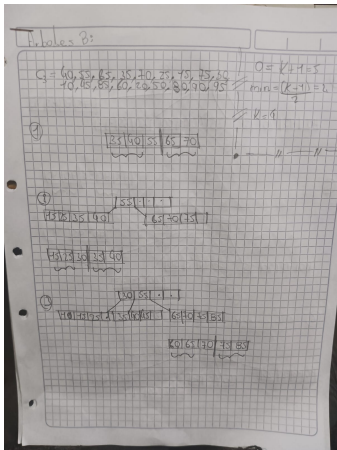 Arboles B:
G = 40, 55, 65, 35, 70, 25, 15, 75, 30
10, 45, 85, 60, 20, 50, 80, 90, 95
O = K+1 = 5
min = (K+1)/2 = 2
K = 4
①
35|40|55|65|70
①
55| · | · | ·
15|25|35|40 65|70|75|
15|25|30|35|40
②
30|55| · | ·
35|40|45| 65|70|75|85
60|65|70|75|85